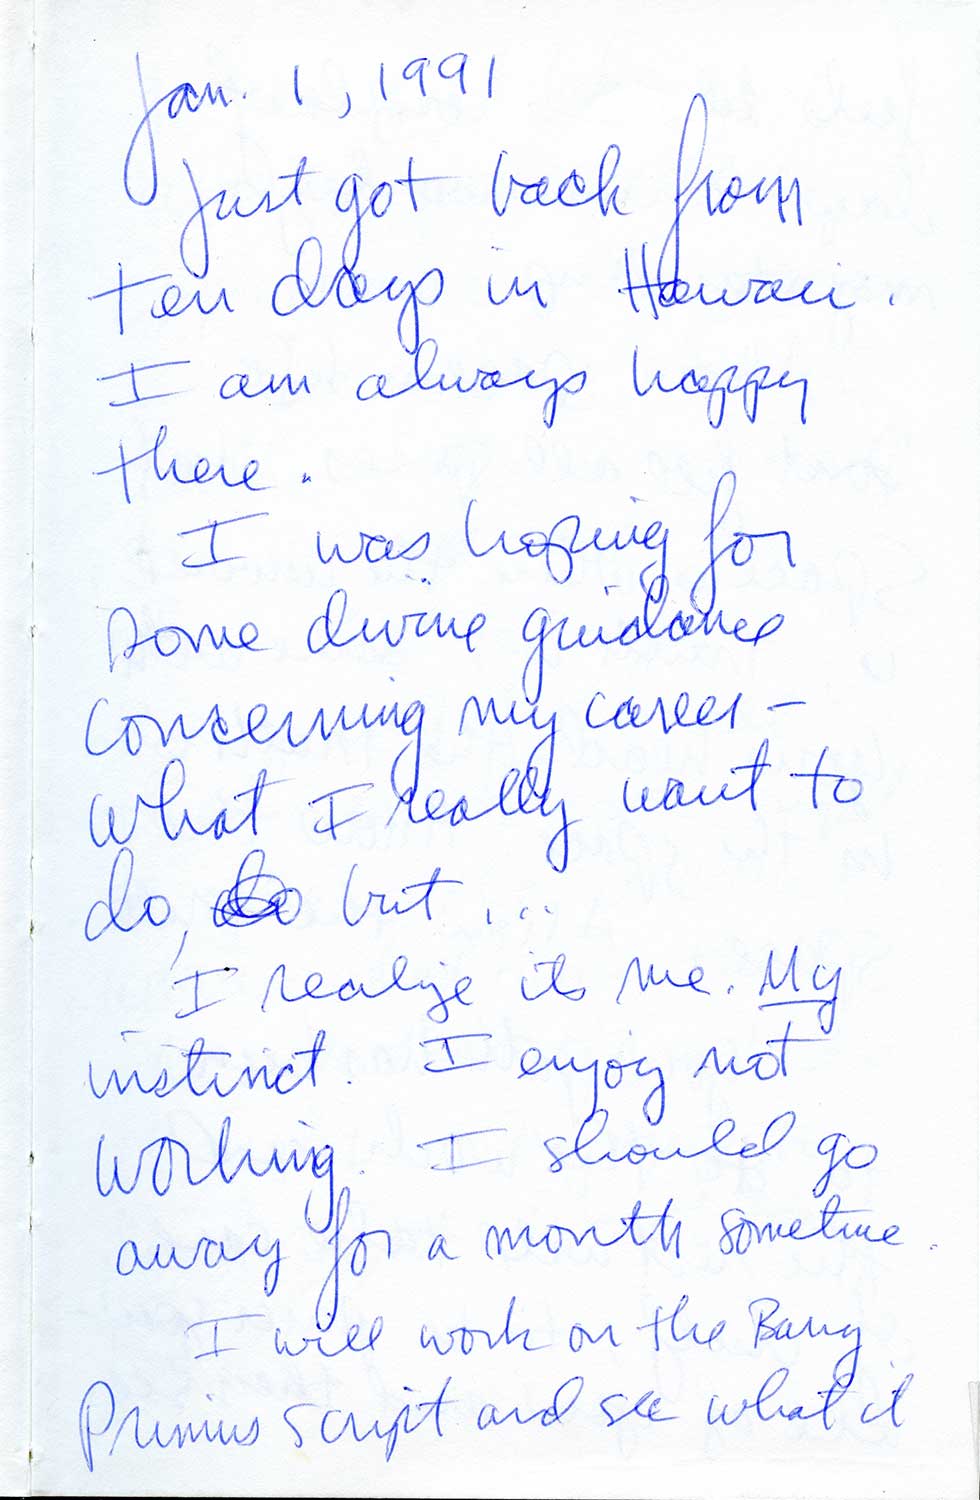 Jan. 1, 1991
Just got back from
ten days in Hawaii.
I am always happy
there.
I was hoping for
some divine guidance
concerning my career -
what I really want to
do, but ...
I realize its me. My
instinct. I enjoy not
working. I should go
away for a month sometime.
I will work on the Barry
script and see what it